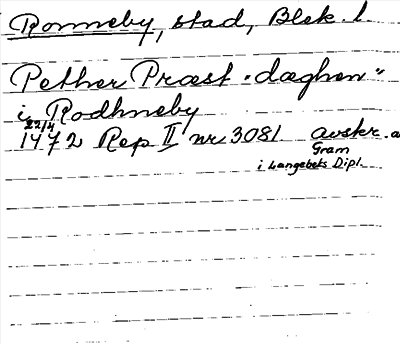 Ronneby, stad, Blek. l
Pether Præst "dæghen"
i Rodhneby
22/4
1472 Rep II nr 3081 avskr. a
Gram
i Langebeks Dipl.